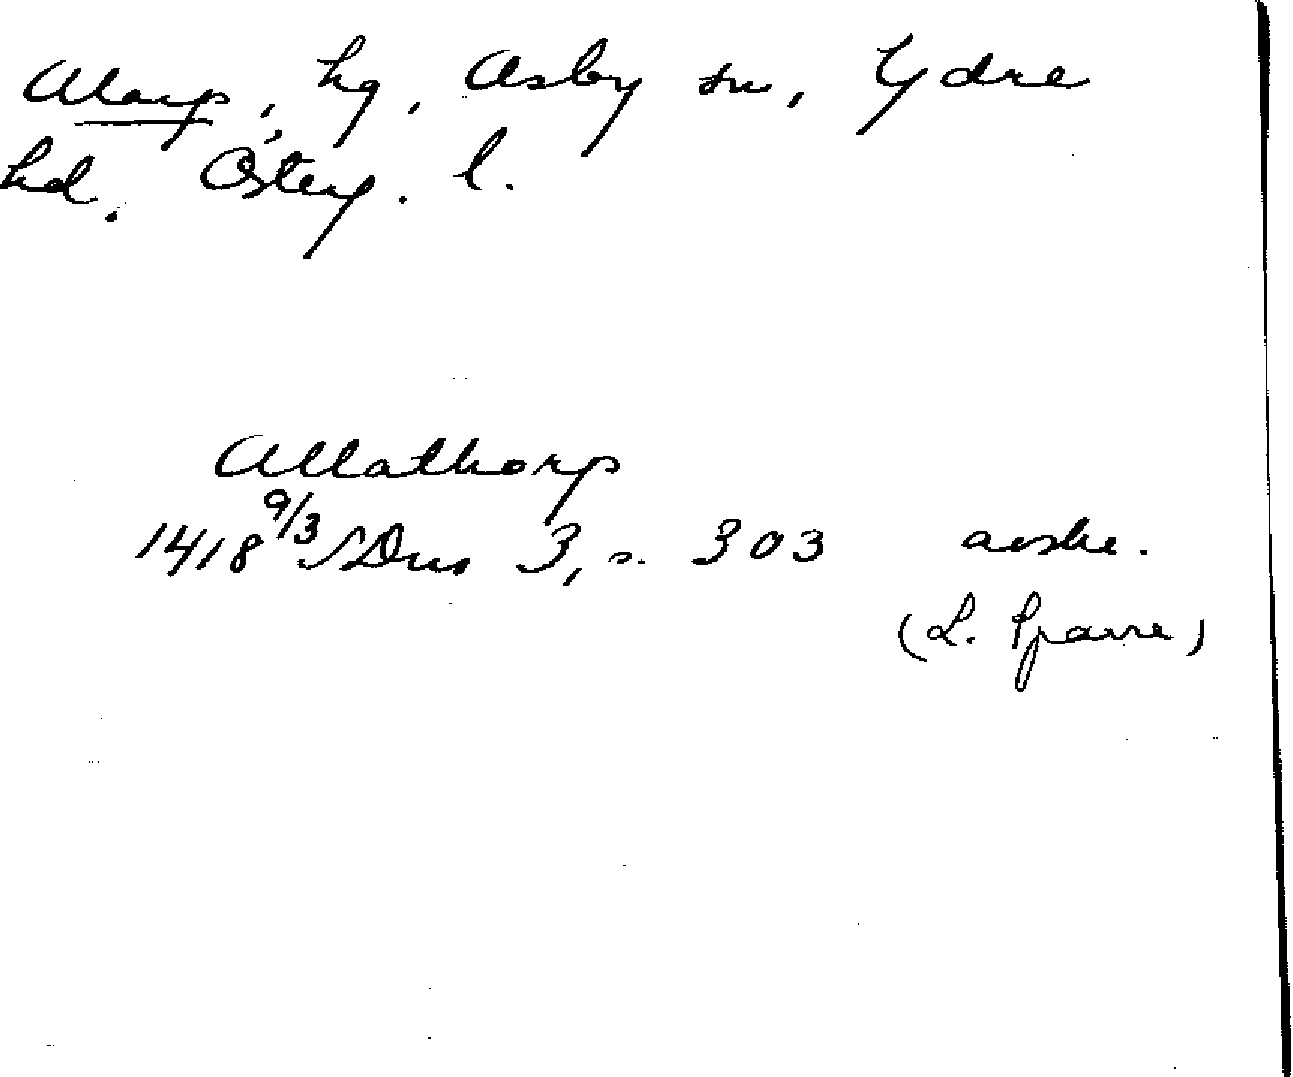 Alarp, hg, Asby sn, Ydre
hd. Österg. l.
Allathorp
1418 9/3 SDns 3, s. 303 avskr.
(L. Sparre)